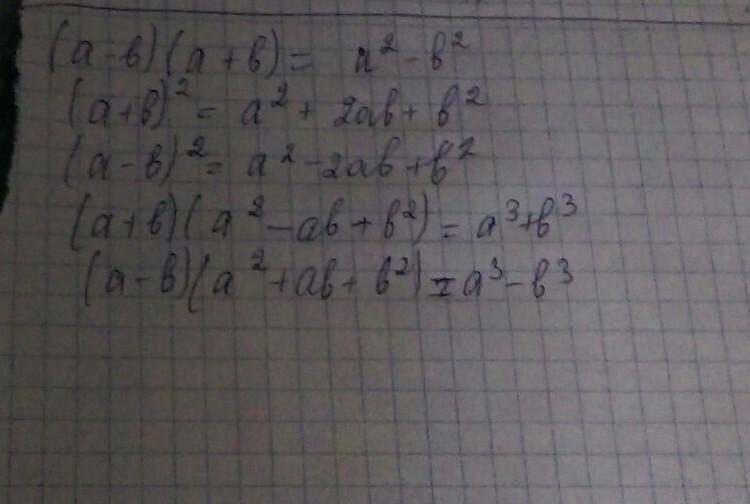 (a-b)(a+b)= a²-b²
(a+b)²= a²+2ab+b²
(a-b)²= a²-2ab+b²
(a+b)(a²-ab+b²)=a³+b³
(a-b)(a²+ab+b²)=a³-b³